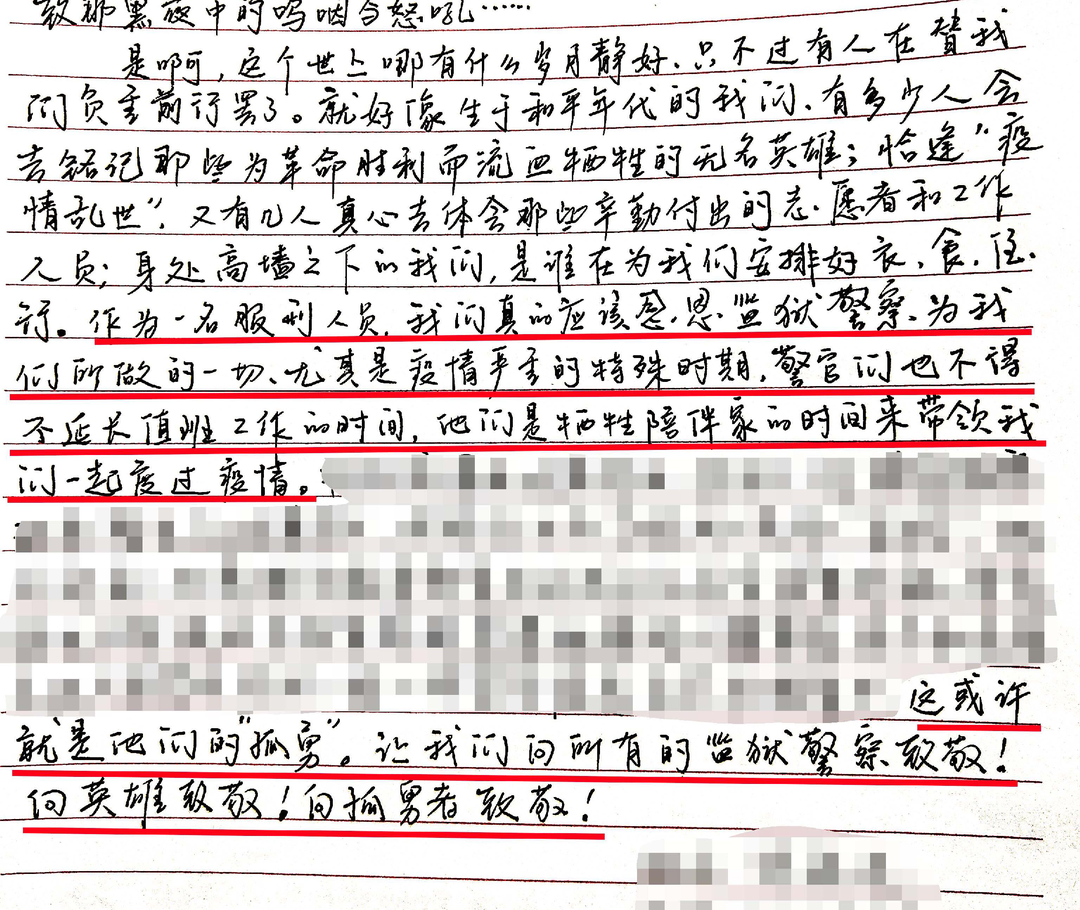 致那黑夜中的呜咽与怒吼……
是啊，这个世上哪有什么岁月静好、只不过有人在替我
们负重前行罢了。就好像生于和平年代的我们、有多少人会
去铭记那些为革命胜利而流血牺牲的无名英雄；恰逢“疫
情乱世”，又有几人真心去体会那些辛勤付出的志愿者和工作
人员；身处高墙之下的我们，是谁在为我们安排好衣、食、住、
行。作为一名服刑人员，我们真的应该感恩监狱警察、为我
们所做的一切、尤其是疫情严重的特殊时期，警官们也不得
不延长值班工作的时间，他们是牺牲陪伴家的时间来带领我
们一起度过疫情。
这或许
就是他们的“孤勇”。让我们向所有的监狱警察致敬！
向英雄致敬！向孤勇者致敬！